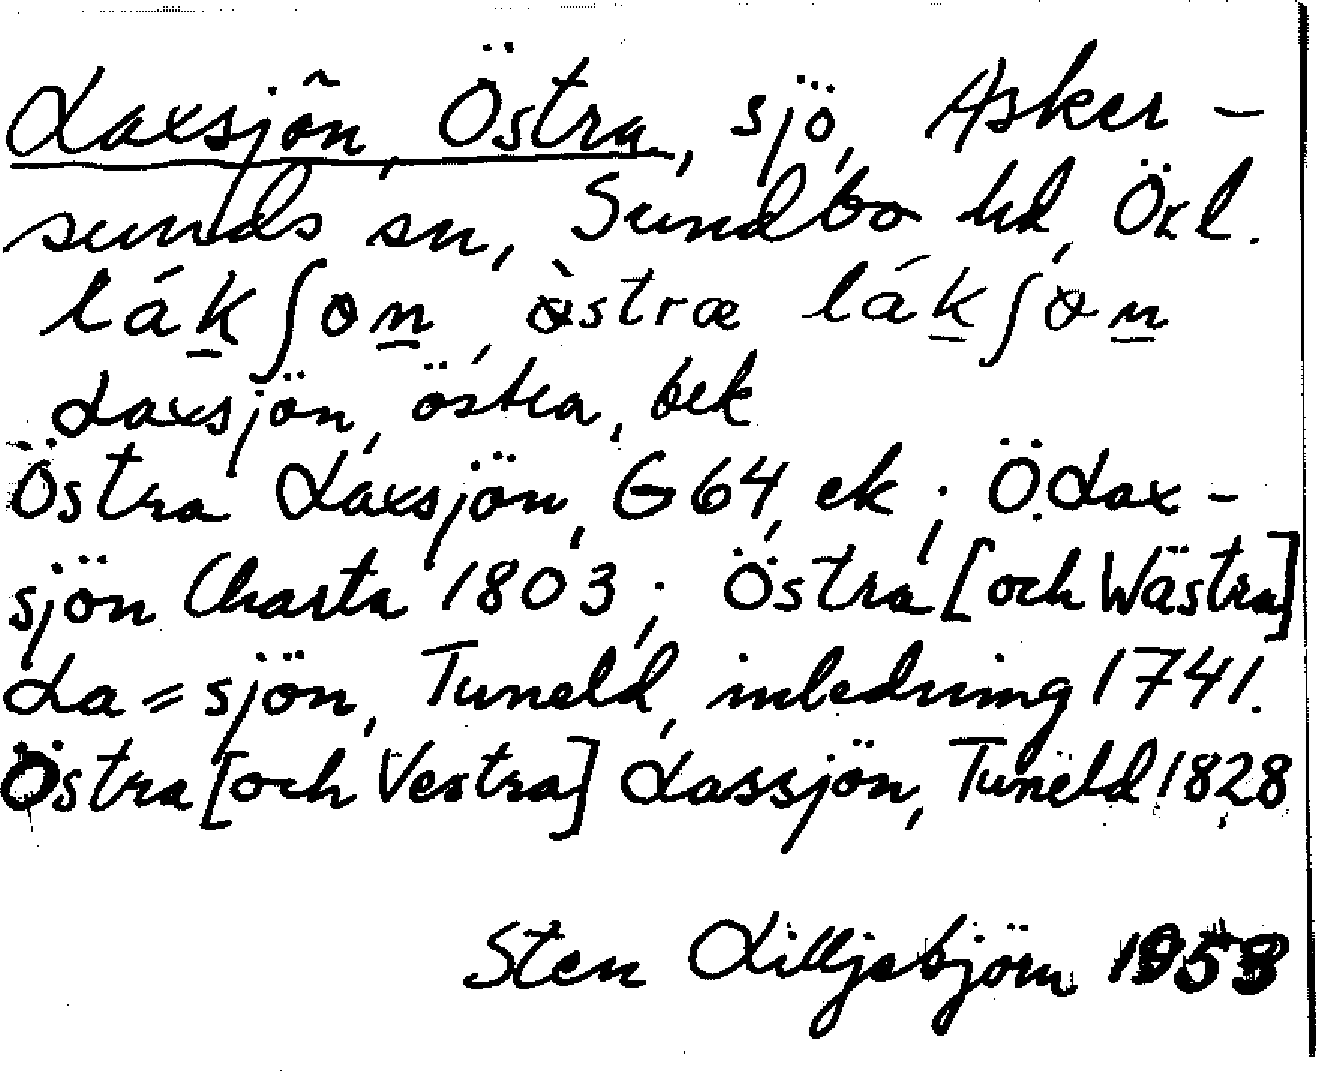 Laxsjön, Östra, sjö, Asker-
sunds sn, Sundbo hd, Örl.
lákʃøn, ø̀stræ lákʃøn
Laxsjön, östra, bek
Östra Laxsjön, G64, ek; Ö.Lax-
sjön Charta 1803; Östra [och Wästra]
La=sjön, Tuneld, inledning 1741.
Östra [och Vestra] Lassjön, Tuneld 1828
Sten Lilljebjörn 1953